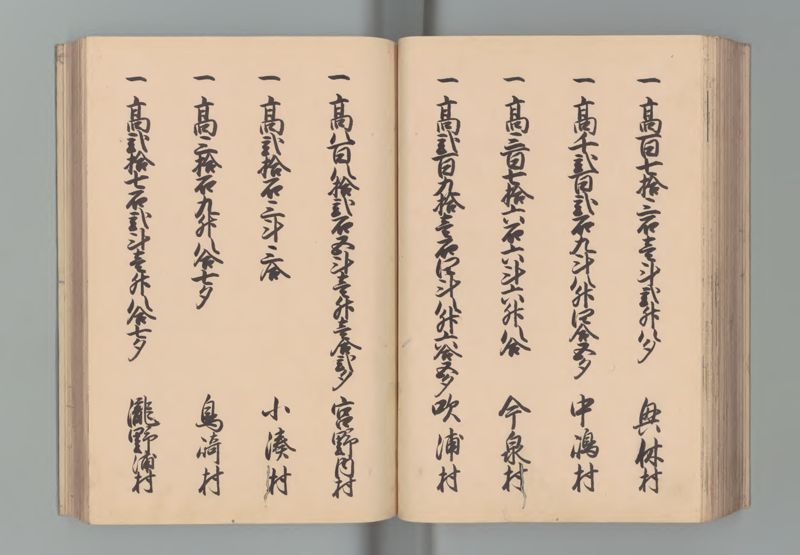 一高百七拾三石壱斗弐升八夕 興休村
一高千弐百弐石九斗八升四合五夕 中嶋村
一高三百七拾六石六斗六升八合 今泉村
一高弐百九拾壱石四斗八升六合五夕 吹浦村
一高八百八拾弐石五斗壱升壱合弐夕 宮野内村
一高弐拾石三斗三合 小湊村
一高三拾石九升八合七夕 鳥崎村
一高弐拾七石弐斗壱升八合七夕 瀧野浦村